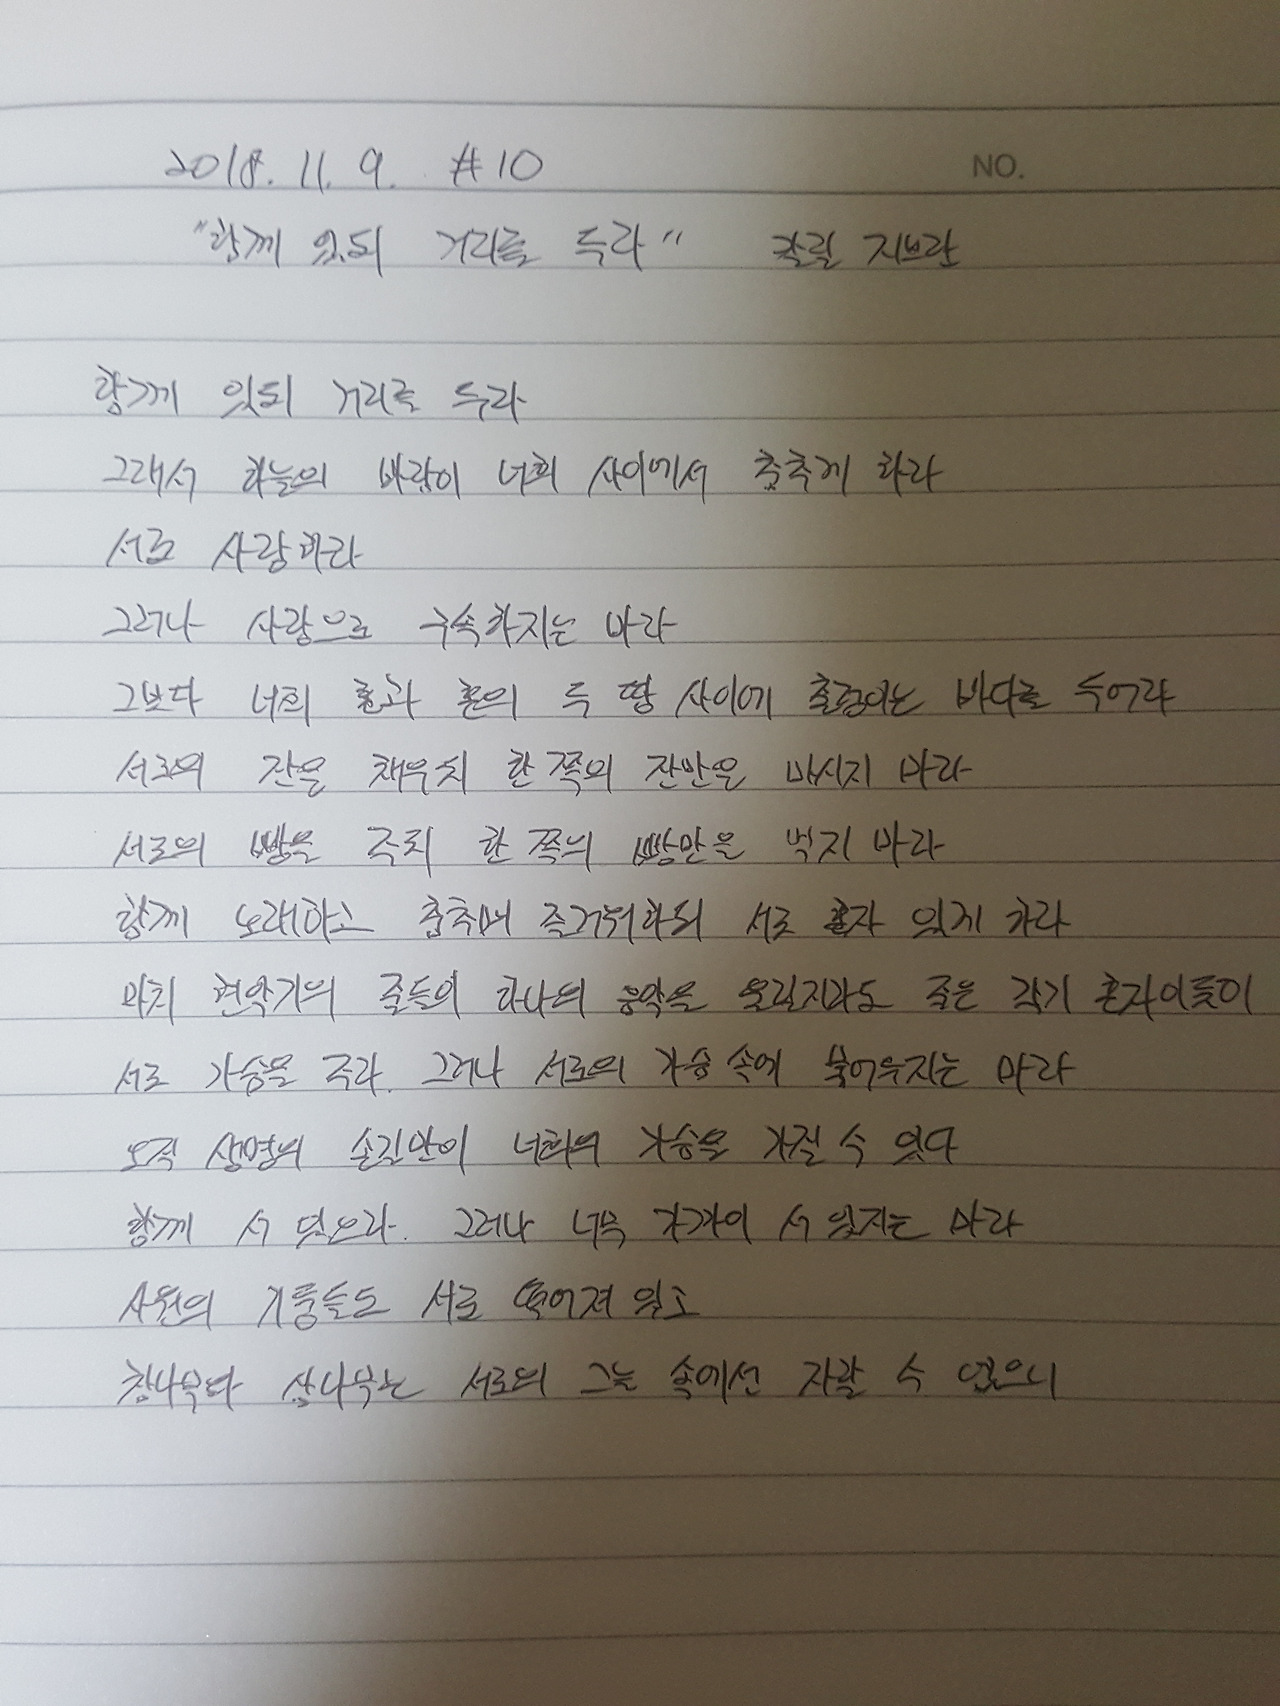 2018. 11. 9. #10
NO.
"함께 있되 거리를 두라" 칼릴 지브란
함께 있되 거리를 두라
그래서 하늘의 바람이 너희 사이에서 춤추게 하라
서로 사랑하라
그러나 사랑으로 구속하지는 마라
그보다 너희 혼과 혼의 두 땅 사이에 출렁이는 바다를 두어라
서로의 잔을 채우되 한 쪽의 잔만을 마시지 마라
서로의 빵을 주되 한 쪽의 빵만을 먹지 마라
함께 노래하고 춤추며 즐거워하되 서로 혼자 있게 하라
마치 현악기의 줄들이 하나의 음악을 울릴지라도 줄은 각기 혼자이듯이
서로 가슴을 주라. 그러나 서로의 가슴 속에 묶어두지는 마라
오직 생명의 손길만이 너희의 가슴을 가질 수 있다
함께 서 있으라. 그러나 너무 가까이 서 있지는 마라
사원의 기둥들도 서로 떨어져 있고
참나무와 삼나무는 서로의 그늘 속에선 자랄 수 없으니